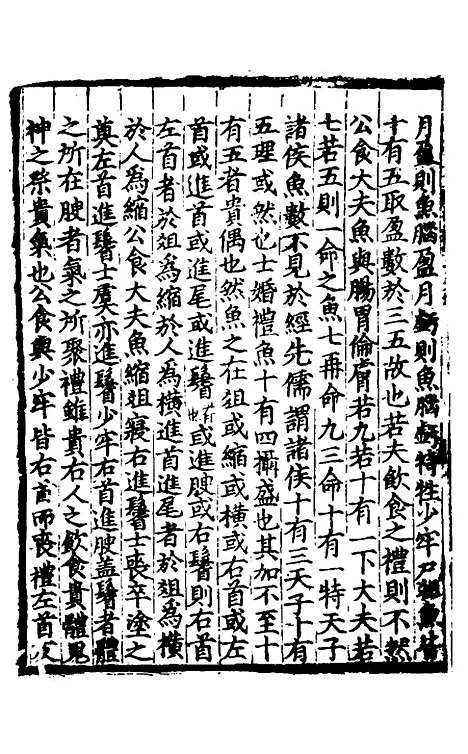 月盈則魚腦盈月虧則魚腦虧特牲少牢尸俎魚皆
十有五取盈數於三五故也若夫飲食之禮則不然
公食大夫魚與腸胃倫膚若九若十有一下大夫若
七若五則一命之魚七再命九三命十有一特天子
諸侯魚數不見於經先儒謂諸侯十有三天子十有
五理或然也士婚禮魚十有四攝盛也其加不至十
有五者貴偶也然魚之在俎或縮或橫或右首或左
首或進首或進尾或進鬐脊也或進腴或右鬐則右首
左首者於俎為縮於人為橫進首進尾者於俎為橫
於人為縮公食大夫魚縮俎寢右進鬐士喪卒塗之
奠左首進鬐士虞亦進鬐少牢右首進腴蓋鬐者體
之所在腴者氣之所聚禮雖貴右人之飲食貴體鬼
神之祭貴氣也公食與少牢皆右首而喪禮左首